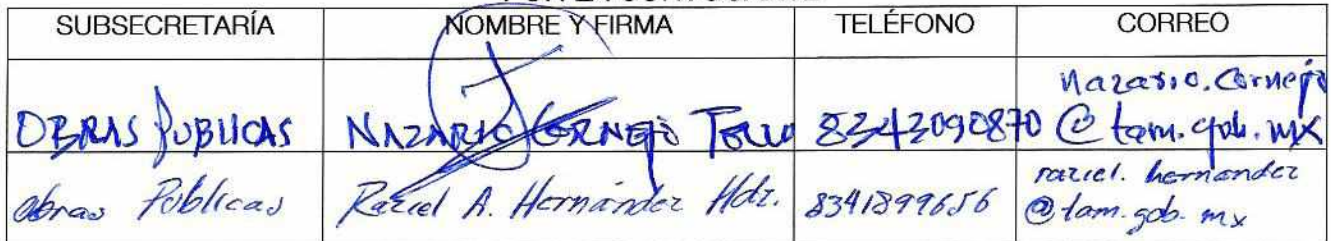 SUBSECRETARÍA NOMBRE Y FIRMA TELÉFONO CORREO
OBRAS PUBLICAS NAZARIO CORNEJO 8342090870 Nazario.Cornejo
@tam.gob.mx
Obras Públicas Raziel A. Hernández Hdz. 8341899656 raziel.hernandez
@tam.gob.mx